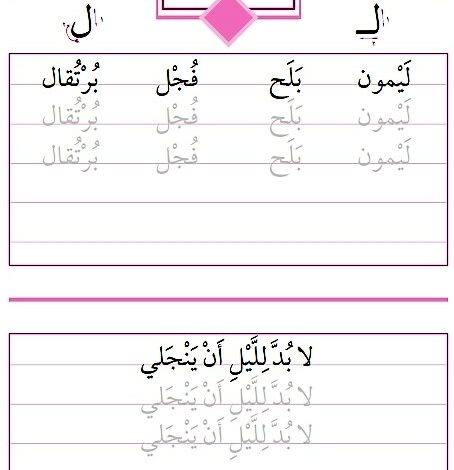 لـ ل
لَيْمون بَلَح فُجْل بُرْتُقال
لَيْمون بَلَح فُجْل بُرْتُقال
لَيْمون بَلَح فُجْل بُرْتُقال
لا بُدَّ لِلَّيْلِ أَنْ يَنْجَلي
لا بُدَّ لِلَّيْلِ أَنْ يَنْجَلي
لا بُدَّ لِلَّيْلِ أَنْ يَنْجَلي